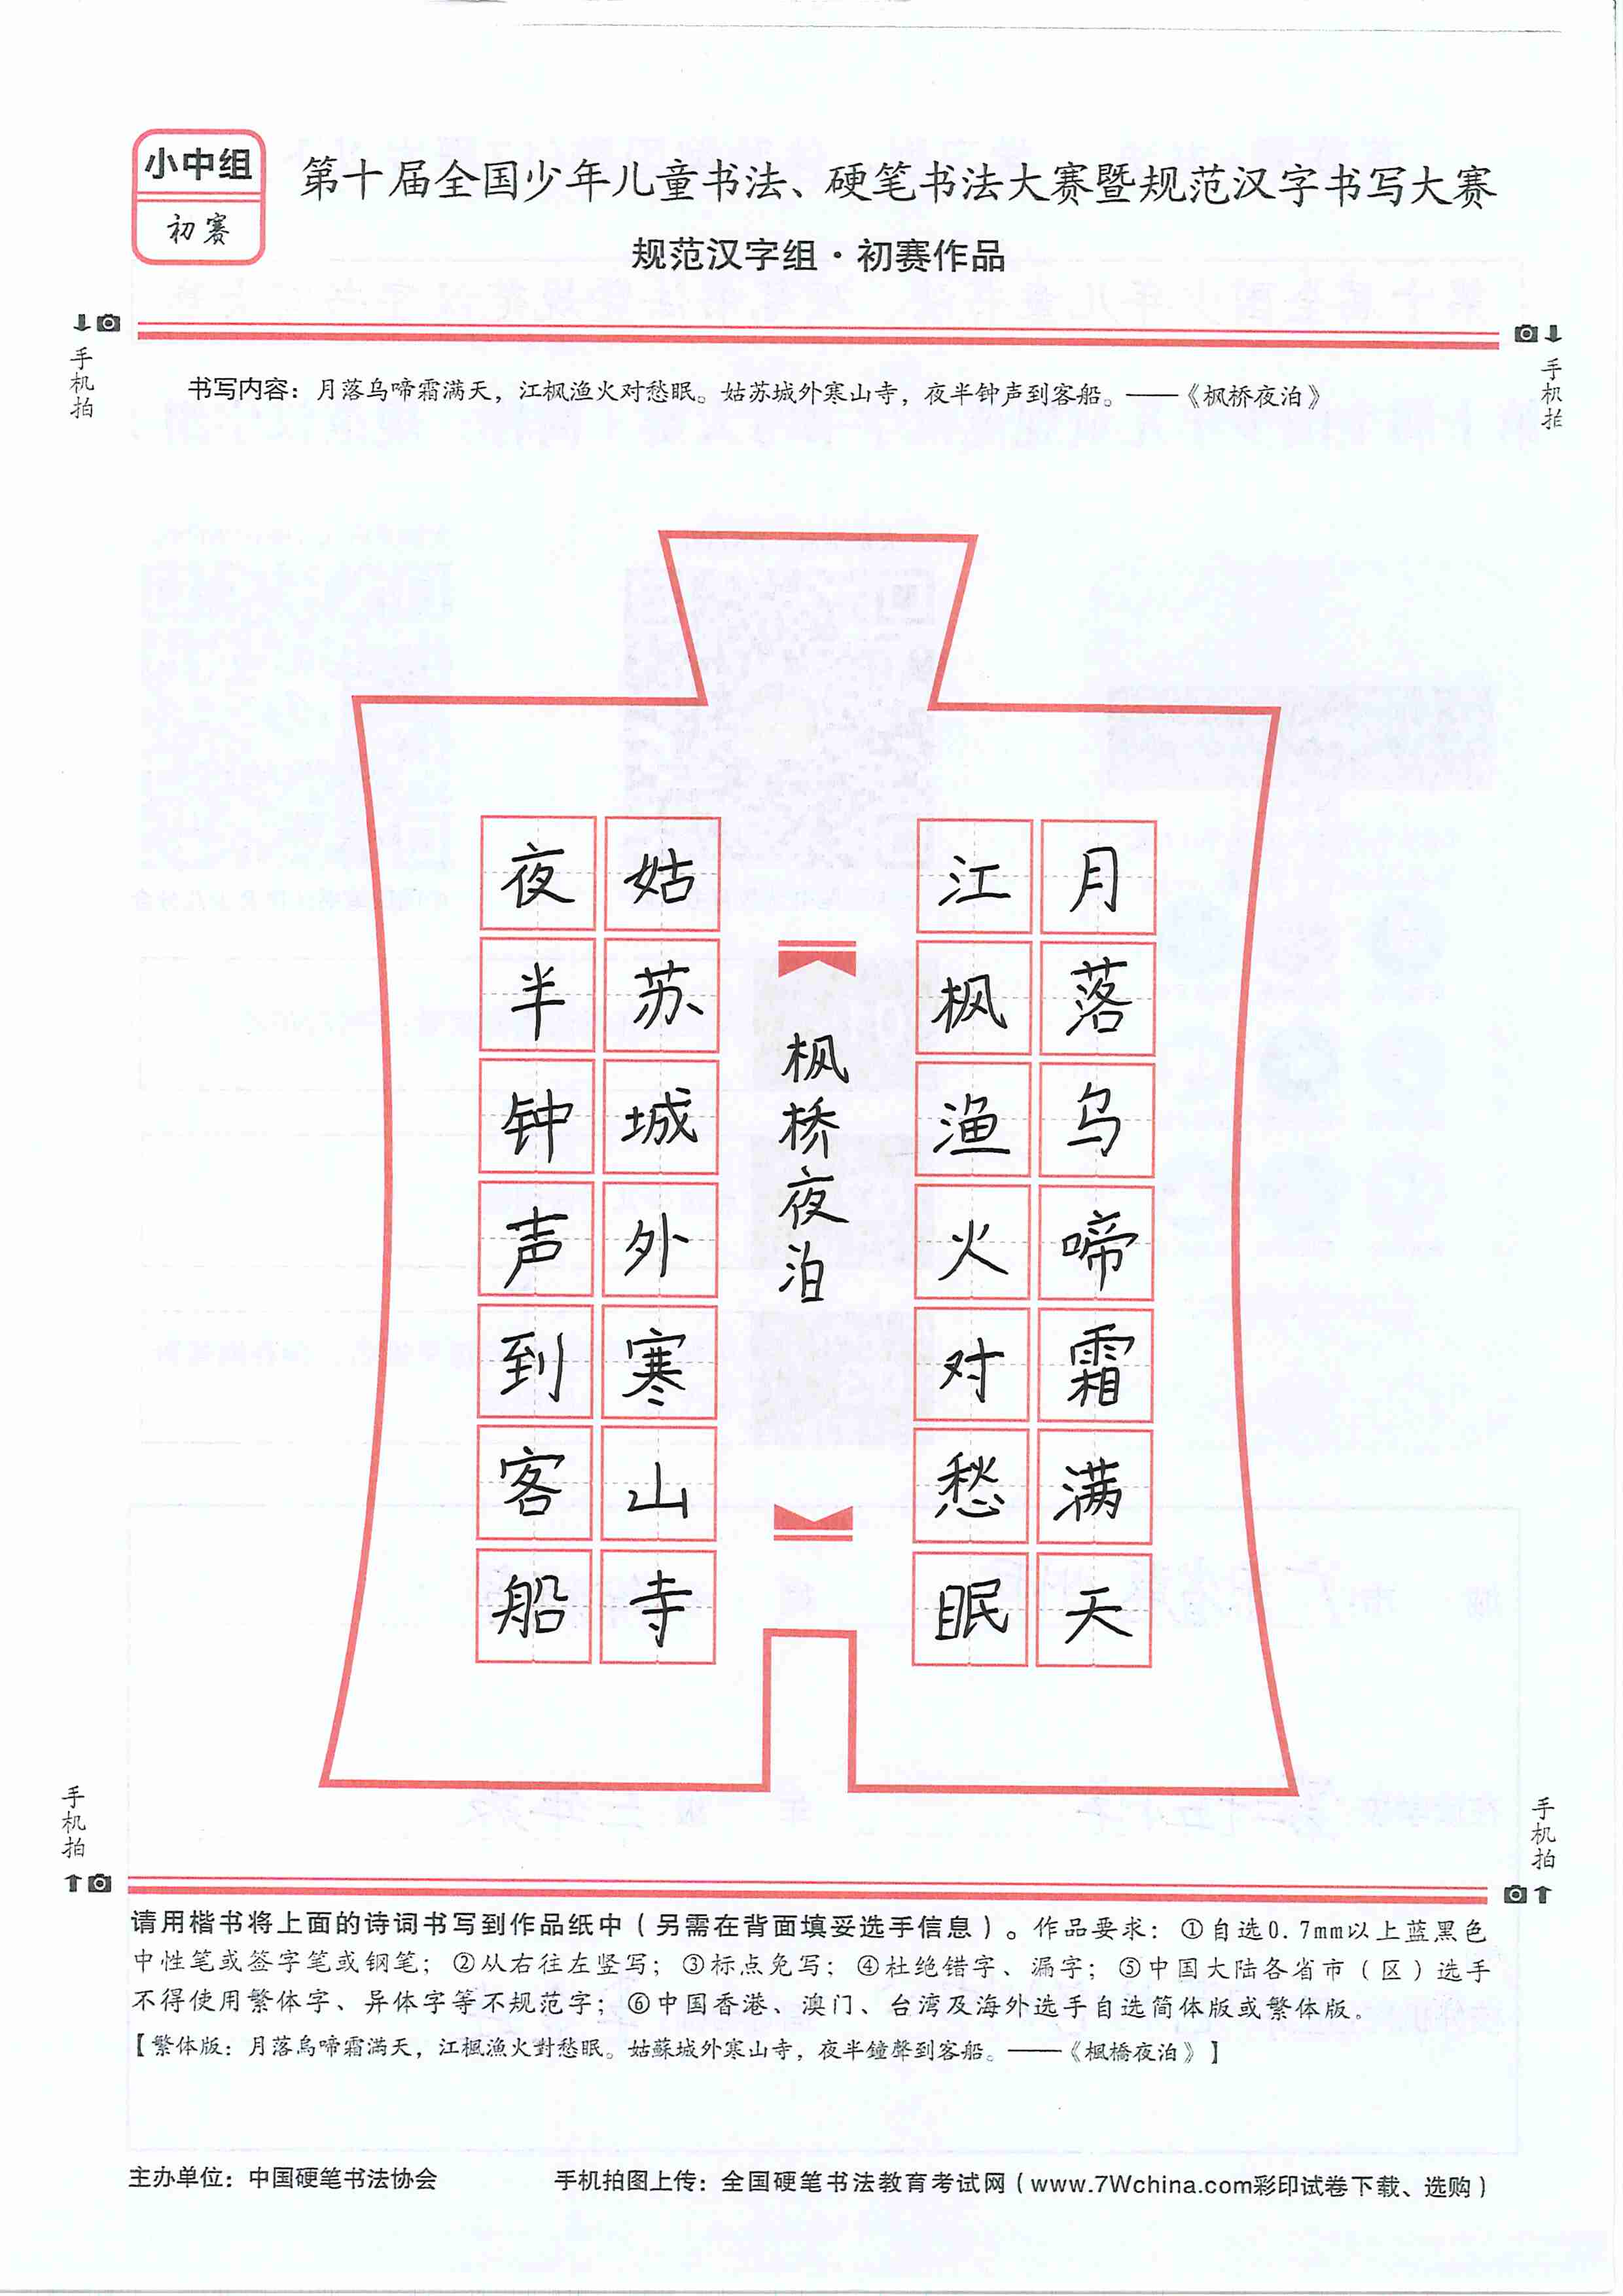 小中组
初赛
第十届全国少年儿童书法、硬笔书法大赛暨规范汉字书写大赛
规范汉字组·初赛作品
手机拍
手机拍
书写内容：月落乌啼霜满天，江枫渔火对愁眠。姑苏城外寒山寺，夜半钟声到客船。——《枫桥夜泊》
月落乌啼霜满天
江枫渔火对愁眠
枫桥夜泊
姑苏城外寒山寺
夜半钟声到客船
手机拍
手机拍
请用楷书将上面的诗词书写到作品纸中（另需在背面填妥选手信息）。作品要求：①自选0.7mm以上蓝黑色
中性笔或签字笔或钢笔；②从右往左竖写；③标点免写；④杜绝错字、漏字；⑤中国大陆各省市（区）选手
不得使用繁体字、异体字等不规范字；⑥中国香港、澳门、台湾及海外选手自选简体版或繁体版。
【繁体版：月落烏啼霜满天，江楓漁火對愁眠。姑蘇城外寒山寺，夜半鐘聲到客船。——《楓橋夜泊》】
主办单位：中国硬笔书法协会
手机拍图上传：全国硬笔书法教育考试网（www.7Wchina.com彩印试卷下载、选购）